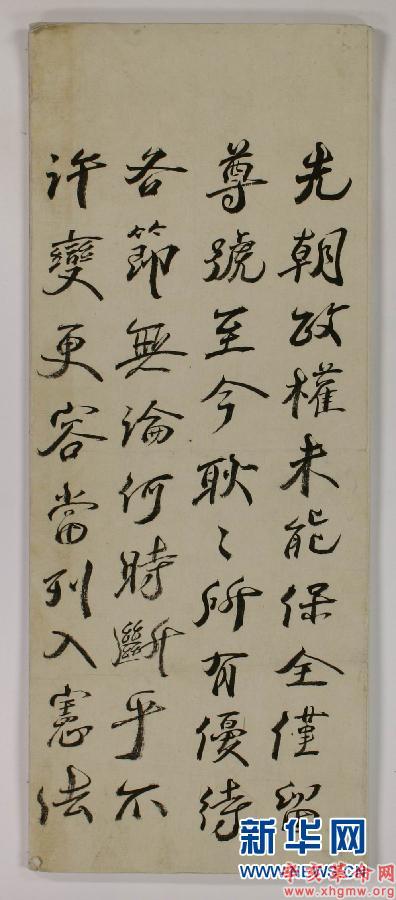 先朝政權未能保全僅留
尊號至今耿〻所有優待
各節無論何時斷乎不
許變更容當列入憲法
新华网
WWW.NEWS.CN
辛亥革命网
www.xhgmw.org